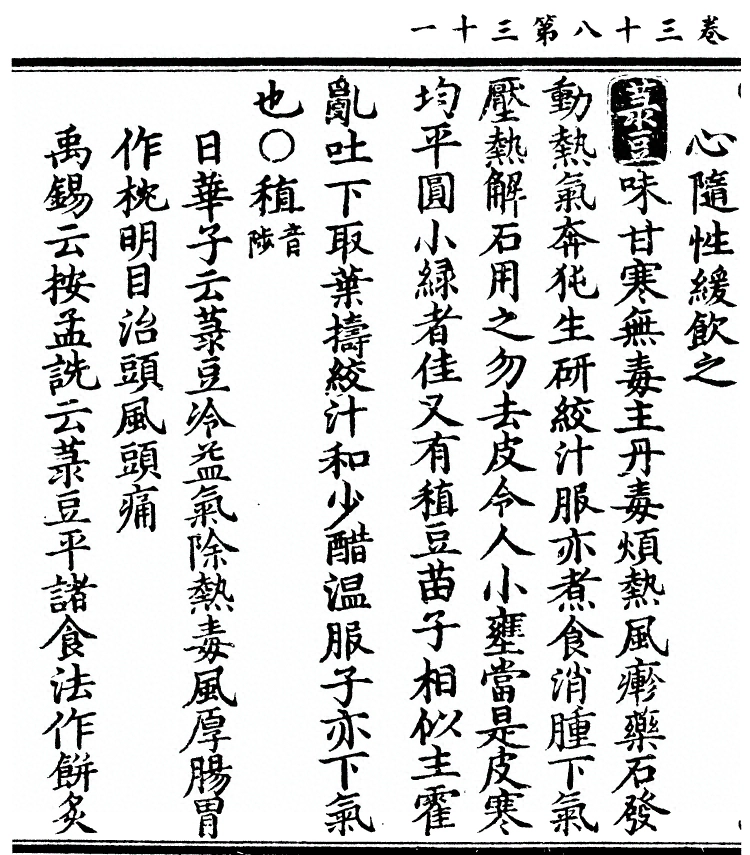 卷三十八第三十一
心隨性緩飲之
菉豆味甘寒無毒主丹毒煩熱風瘮藥石發
動熱氣奔㹠生研絞汁服亦煮食消腫下氣
壓熱解石用之勿去皮令人小壅當是皮寒
均平圓小緑者佳又有稙豆苗子相似主霍
亂吐下取葉擣絞汁和少醋温服子亦下氣
也○稙音陟
日華子云菉豆冷益氣除熱毒風厚腸胃
作枕明目治頭風頭痛
禹錫云按孟詵云菉豆平諸食法作餅炙